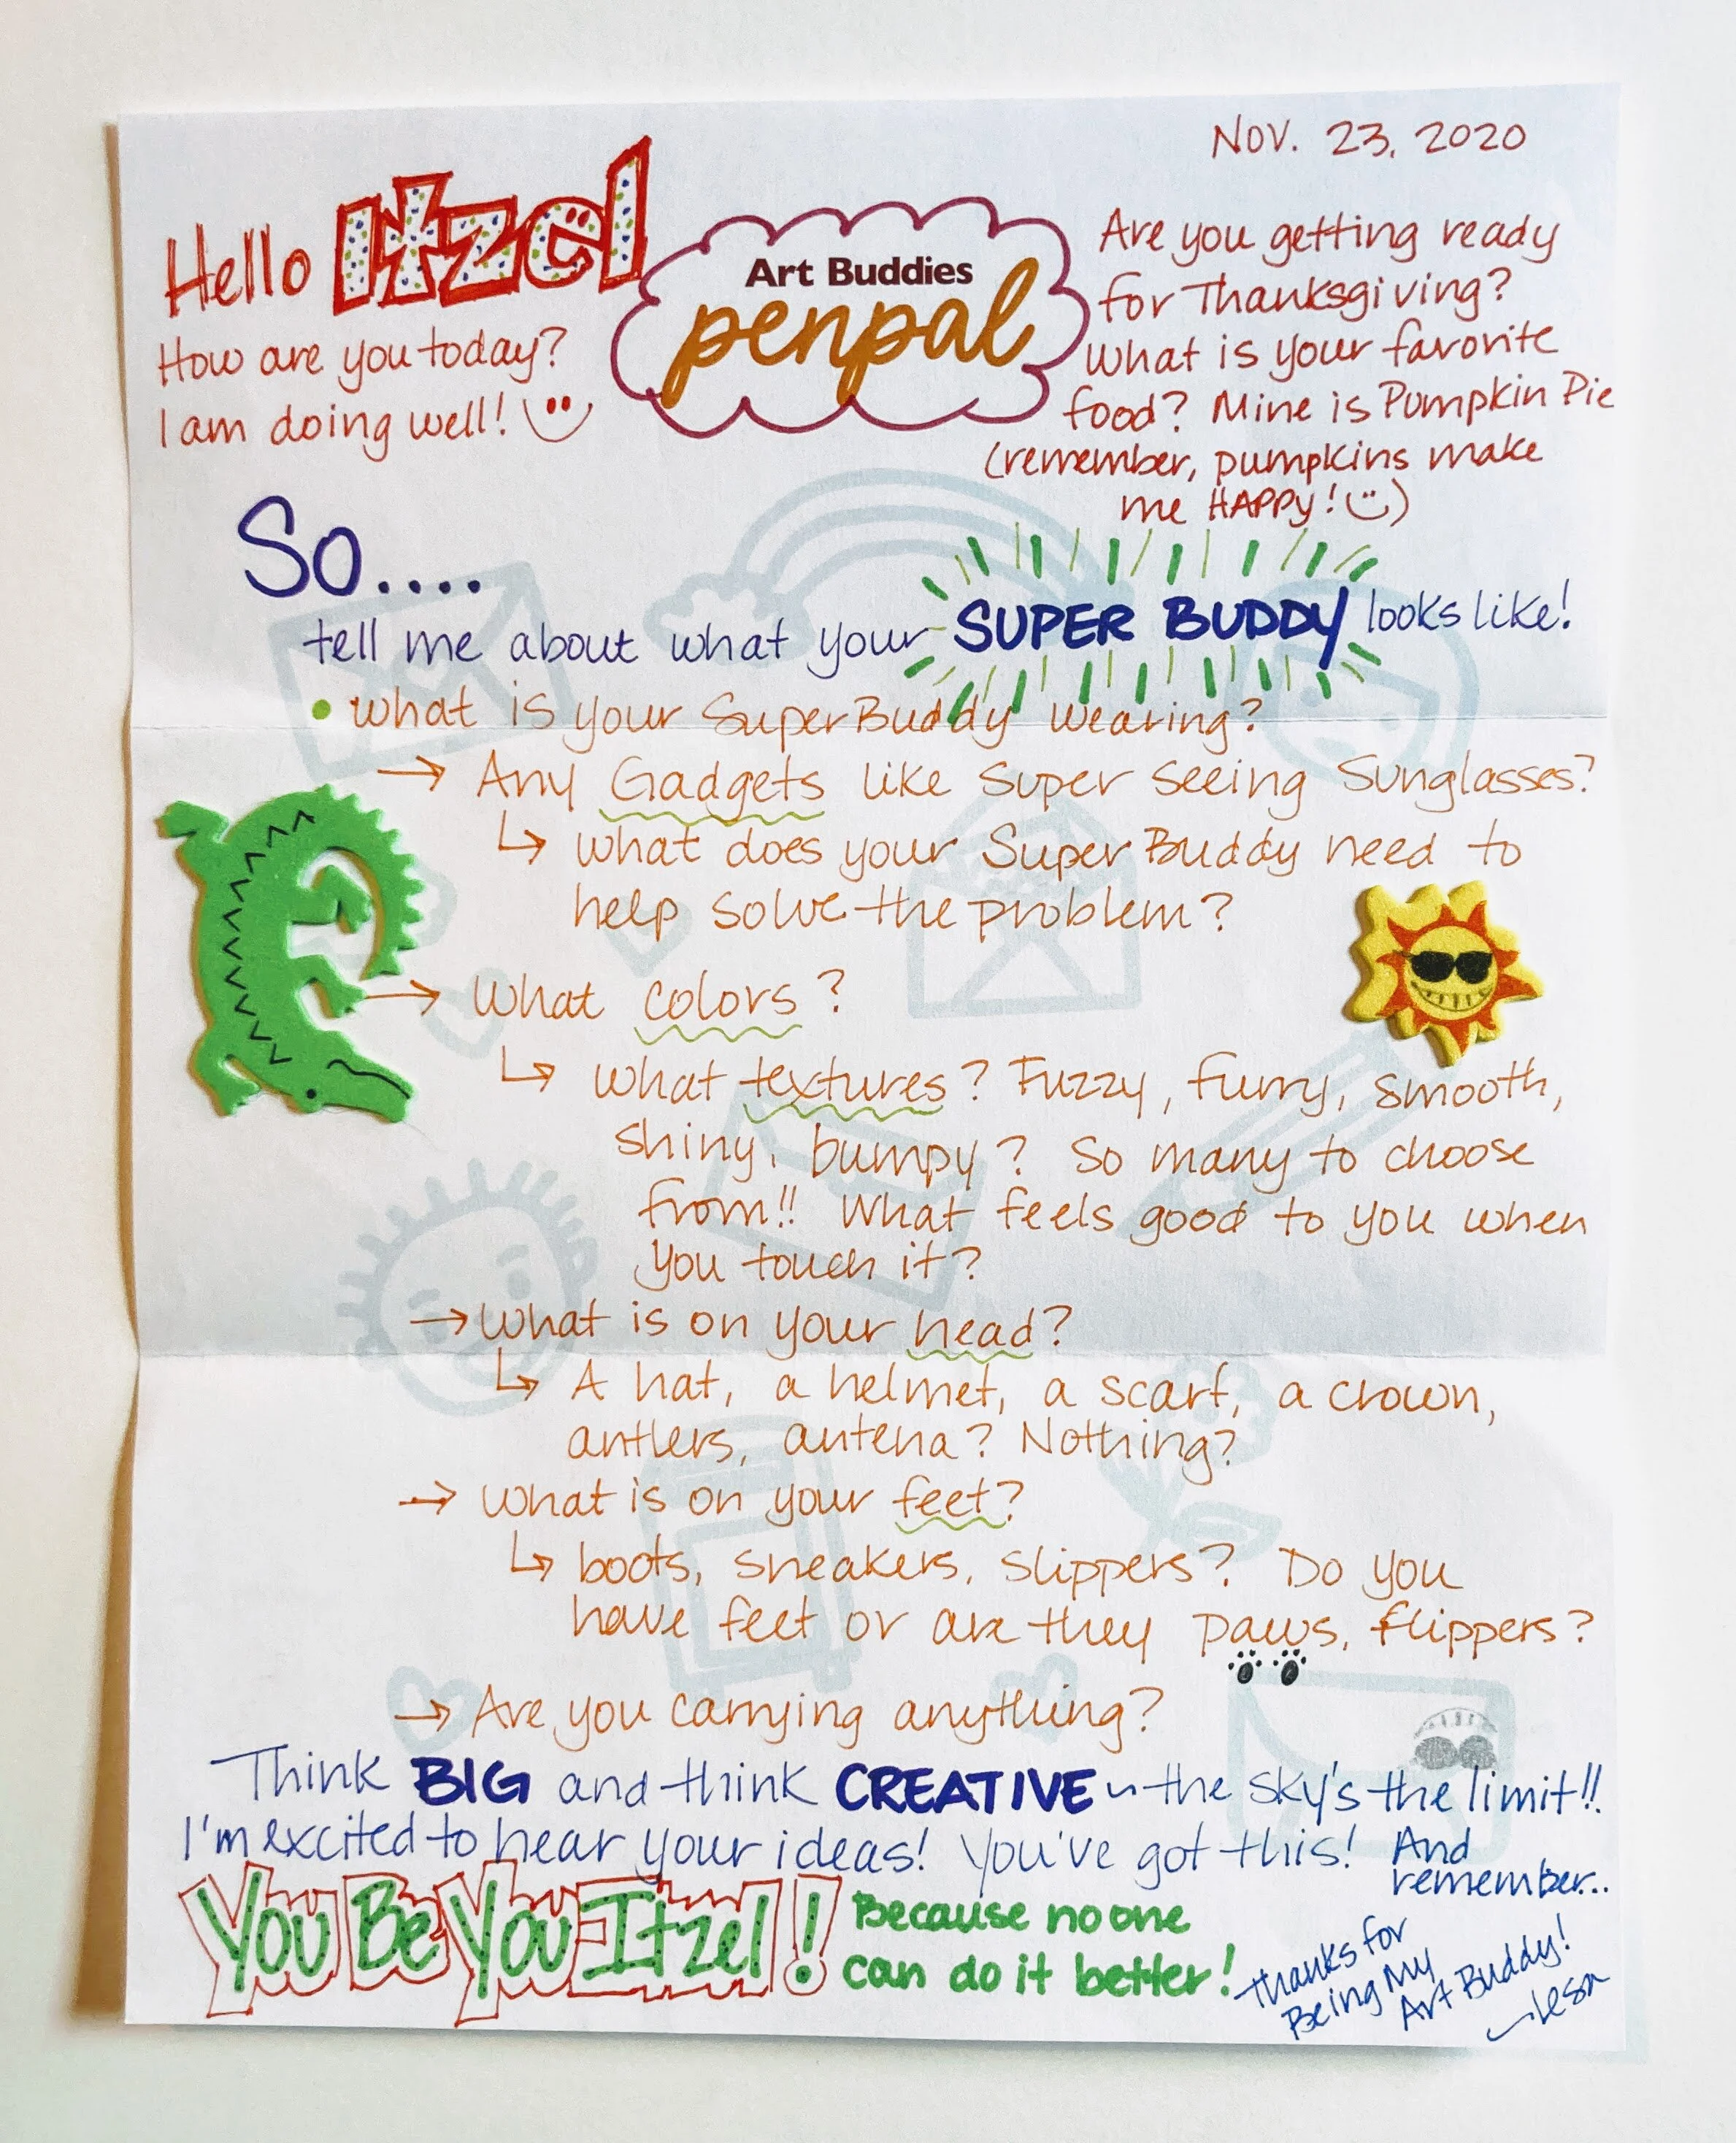 Nov. 23, 2020
Hello Itzel
How are you today?
I am doing well!
Art Buddies
penpal
Are you getting ready
for Thanksgiving?
What is your favorite
food? Mine is Pumpkin Pie
(remember, pumpkins make
me HAPPY!)
So....
tell me about what your SUPER BUDDY looks like!
• What is your SuperBuddy wearing?
→ Any Gadgets like Super Seeing Sunglasses?
↳ What does your Super Buddy need to
help solve the problem?
→ What colors?
↳ What textures? Fuzzy, furry, smooth,
shiny, bumpy? So many to choose
from!! What feels good to you when
you touch it?
→ What is on your head?
↳ A hat, a helmet, a scarf, a crown,
antlers, antena? Nothing?
→ What is on your feet?
↳ boots, sneakers, slippers? Do you
have feet or are they paws, flippers?
→ Are you carrying anything?
Think BIG and think CREATIVE ~ the sky's the limit!!
I'm excited to hear your ideas! You've got this! And
remember...
You Be You Itzel!
Because no one
can do it better!
Thanks for
Being My
Art Buddy!